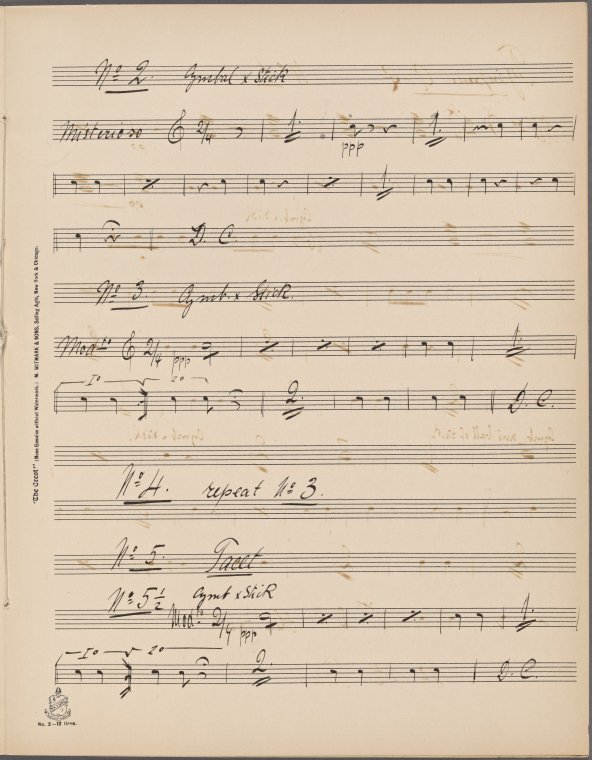 No 2. Cymbal & Stick
Misterioso 2/4 1. ppp 1.
1.
D.C.
No 3. Cymb. & Stick.
Modto 2/4 ppp 1.
1o 2o 2. D.C.
No 4. repeat No 3.
No 5. Tacet
No 5½ Cymb & Stick
Modo 2/4 ppp 1.
1o 2o 2. D.C.
"The Crest" (None Genuine without Watermark.) M. WITMARK & SONS, Selling Agts, New York & Chicago.
No. 2—12 lines.